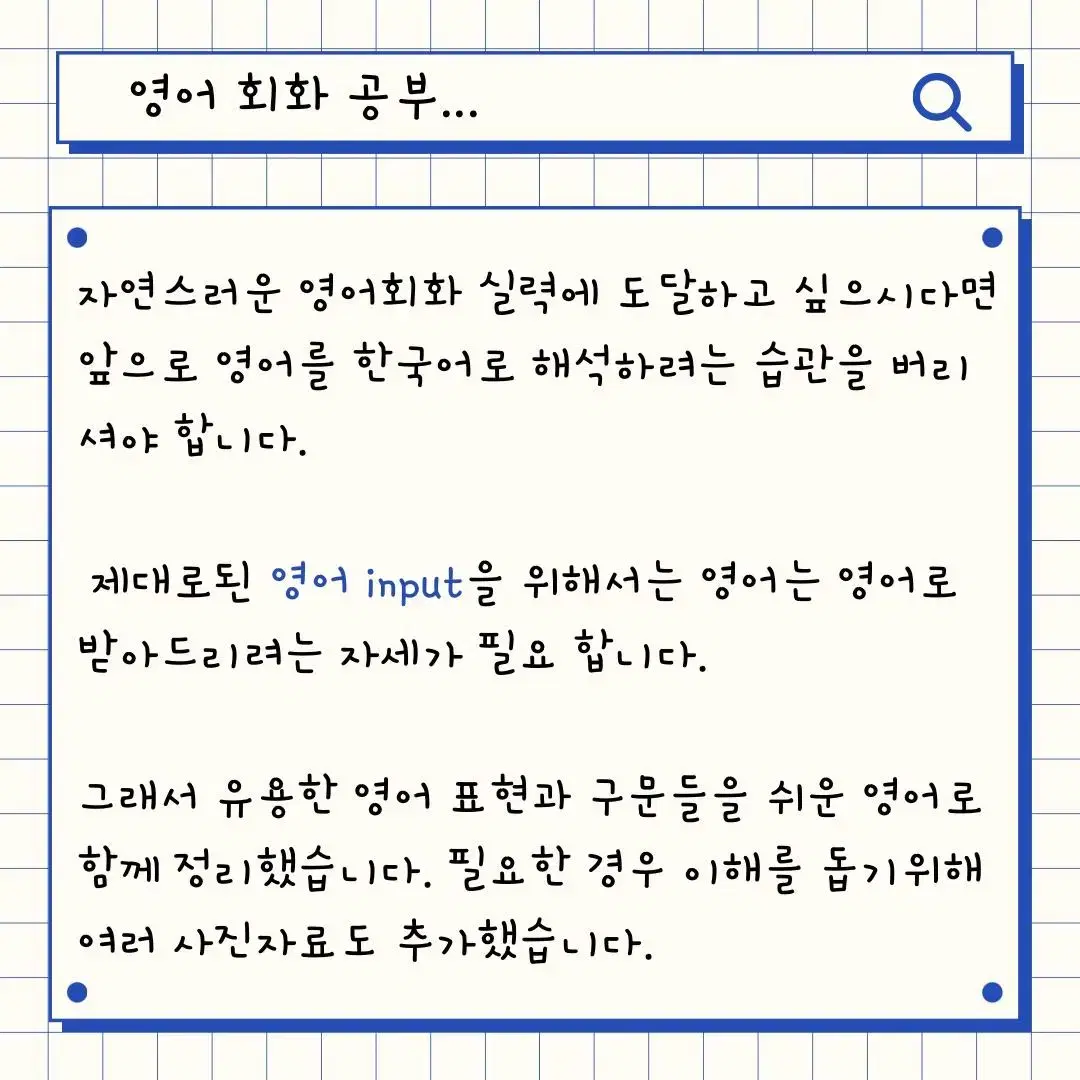 영어 회화 공부...
자연스러운 영어회화 실력에 도달하고 싶으시다면
앞으로 영어를 한국어로 해석하려는 습관을 버리
셔야 합니다.
제대로된 영어 input을 위해서는 영어는 영어로
받아드리려는 자세가 필요 합니다.
그래서 유용한 영어 표현과 구문들을 쉬운 영어로
함께 정리했습니다. 필요한 경우 이해를 돕기위해
여러 사진자료도 추가했습니다.